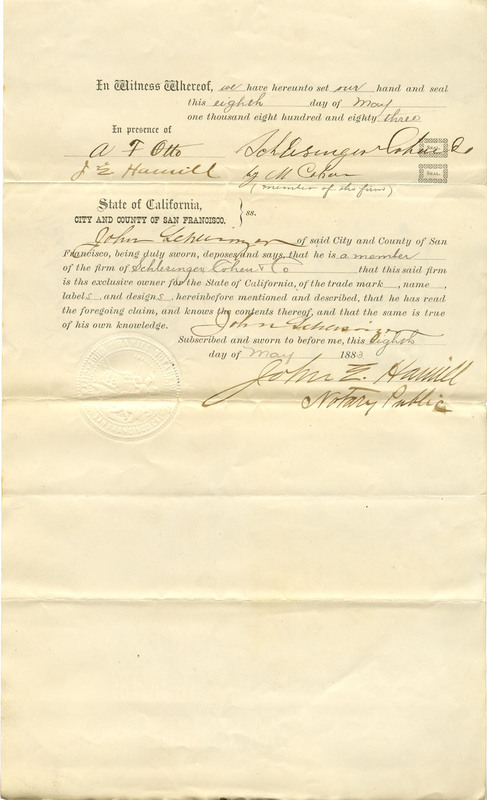 In Witness Whereof, we have hereunto set our hand and seal
this eighth day of May
one thousand eight hundred and eighty three
In presence of
A F Otto Schlesinger Cohen & Co SEAL
J E Hamill By M Cohen SEAL
(member of the firm)
State of California,
CITY AND COUNTY OF SAN FRANCISCO. } ss.
John of said City and County of San
Francisco, being duly sworn, deposes and says, that he is a member
of the firm of Schlesinger Cohen & Co that this said firm
is ths exclusive owner for the State of California, of the trade mark, name,
labels, and designs, hereinbefore mentioned and described, that he has read
the foregoing claim, and knows the contents thereof, and that the same is true
of his own knowledge. John
Subscribed and sworn to before me, this eighth
day of May 1883
John E. Hamill
Notary Public